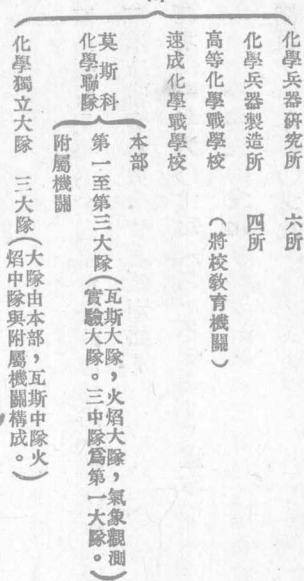 化學兵器研究所　六所
化學兵器製造所　四所
高等化學戰學校　（將校敎育機關）
速成化學戰學校
莫斯科
化學聯隊
本部
第一至第三大隊（瓦斯大隊，火焰大隊，氣象觀測
實驗大隊。三中隊爲第一大隊。）
附屬機關
化學獨立大隊　三大隊（大隊由本部，瓦斯中隊火
焰中隊與附屬機關構成。）